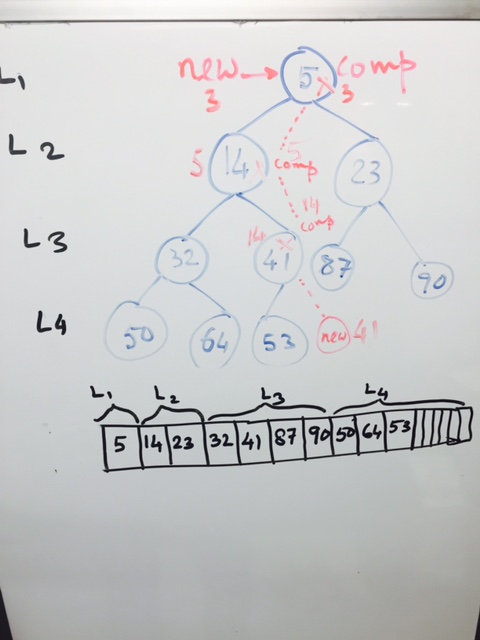 new → 5 comp
L1 3 3
L2 5 14 5 comp 23
14 comp
L3 32 14 41 87 90
L4 50 64 53 new 41
L1 L2 L3 L4
5 14 23 32 41 87 90 50 64 53